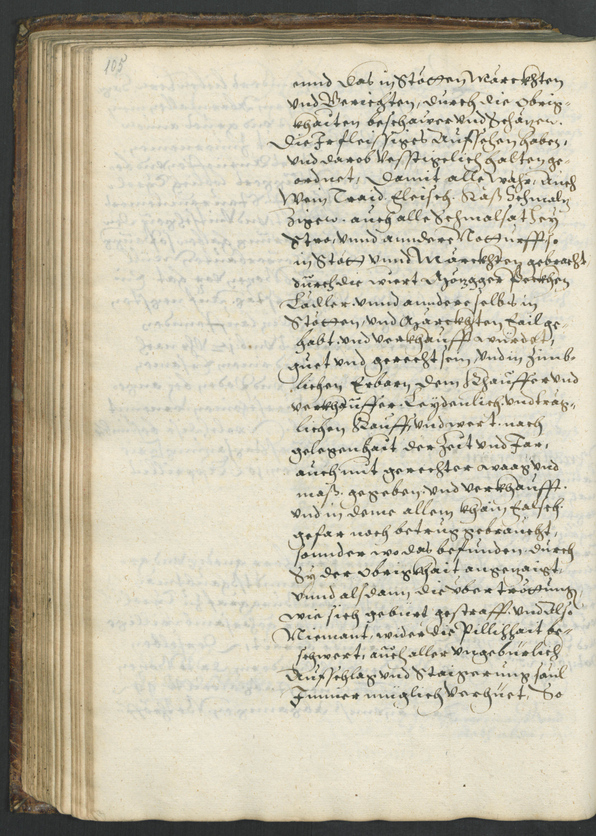 105
ennd das in Stötten Märckhten
vnd Gerichten, durch die Obrig-
khaiten beschawer vnd Schäzer.
Die Ir fleissiges Aufsehen haben,
vnd darob vesstigelich halten ge-
ordnet, Damit alle wahr, Auch
Wein Traid Fleisch. Käß Schmalz
Ziger. auch alle Schmalsat Hew
Stro, vnnd anndere Notturfft so
in Stött vnnd Märckhten gebracht,
durch die wiert Meczgger Peckhen
Ladler vnnd anndere selbs in
Stötten, vnd Märckhten Fail ge-
habt vnd verkhaufft würdet,
guet vnd gerecht sein, vnd in zimb-
lichen Erbarn dem Khauffer vnd
verkhauffer. Leydenlich vnd träg-
lichen Kauff, vnd wert. nach
gelegenhait der Zeit vnd Jar,
auch mit gerechter waag vnd
maß. gegeben, vnd verkhaufft.
vnd in deme allem khain Falsch.
gefar noch betrug gebraucht,
sonnder wo das befunden, durch
Sy der Obrigkhait angenaigt
vnnd alsdann die vbertrettung
wie sich gebürt gestrafft. vnd also
Niemant, wider die Pillichait be-
schwert, auch aller vngebürlich
Aufschlag vnd Staigerung souil
Immer müglich verhüet, So